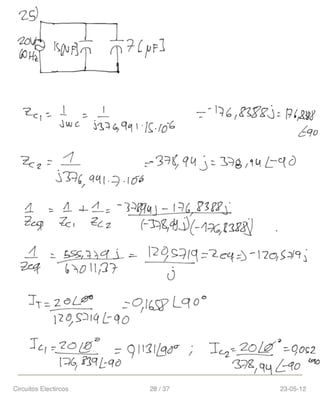 25)
20V
60Hz
15[μF]
7[μF]
Zc1 = 1/jwc = 1/j376,991·15·10^-6 = -176,8388j = 176,8388 ∠-90
Zc2 = 1/j376,991·7·10^-6 = -378,94j = 378,94 ∠-90
1/Zeq = 1/Zc1 + 1/Zc2 = -378,94j - 176,8388j/(-378,94j)(-176,8388j)
1/Zeq = 555,779j/67011,37 = 120,5719/j = Zeq => -120,5719j
IT = 20∠0°/120,5719∠-90 = 0,1658 ∠90°
Ic1 = 20∠0°/176,839∠-90 = 0,1131∠90° ; Ic2 = 20∠0°/378,94∠-90 = 0,052 ∠90
Circuitos Electiricos 28 / 37 23-05-12